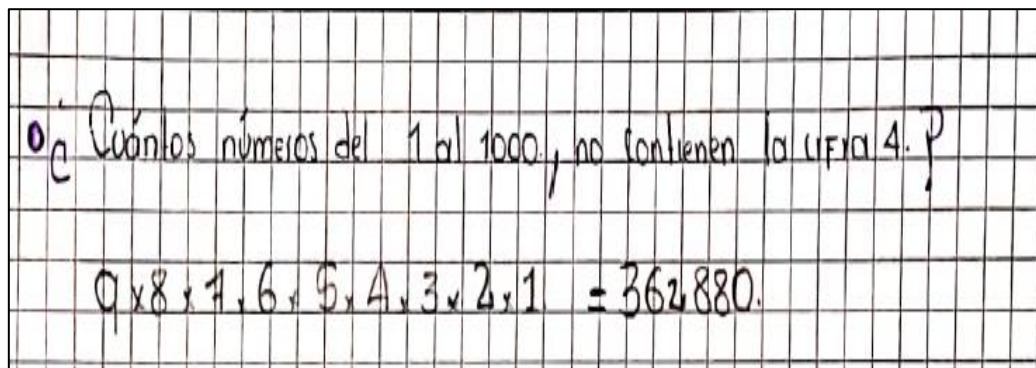 ¿Cuántos números del 1 al 1000, no contienen la cifra 4.?
9x8x7x6x5x4x3x2x1 = 362880.